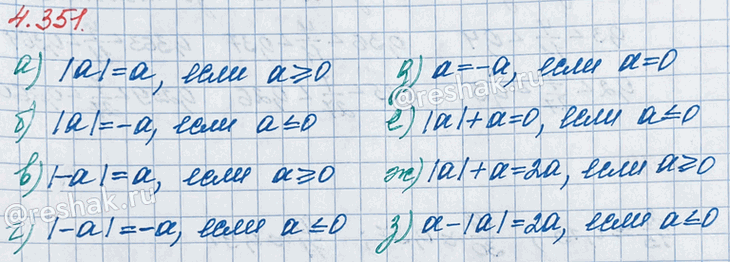 4.351.
а) |a|=a, если a≥0
б) |a|=-a, если a≤0
в) |-a|=a, если a≥0
г) |-a|=-a, если a≤0
д) a=-a, если a=0
е) |a|+a=0, если a≤0
ж) |a|+a=2a, если a≥0
з) a-|a|=2a, если a≤0
©reshak.ru
©reshak.ru